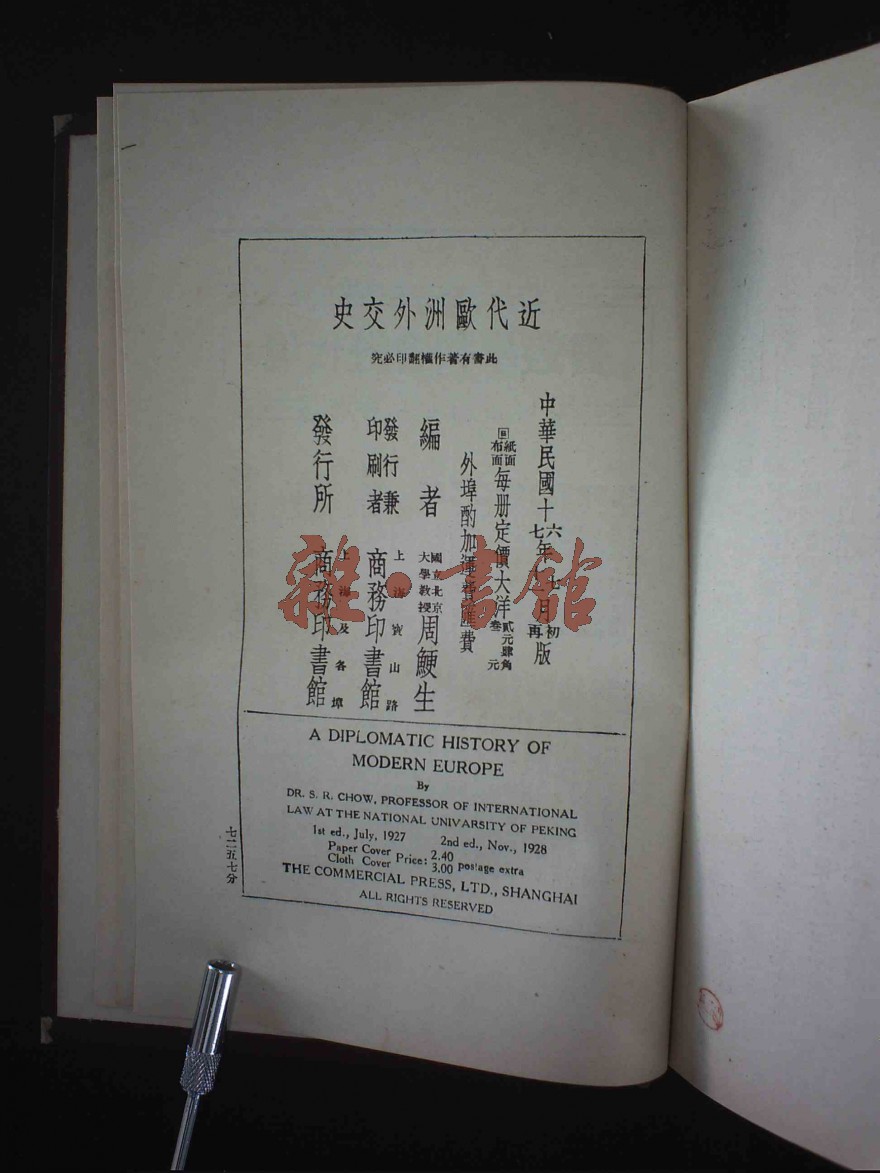 近代歐洲外交史
此書有著作權翻印必究
中華民國十六七年 月初再版
紙面布面每册定價大洋貳元肆角叁元
外埠酌加運費匯費
編者 國立北京大學教授 周鯁生
發行兼印刷者 上海寶山路 商務印書館
發行所 上海及各埠 商務印書館
A DIPLOMATIC HISTORY OF
MODERN EUROPE
By
DR. S. R. CHOW, PROFESSOR OF INTERNATIONAL
LAW AT THE NATIONAL UNIVARSITY OF PEKING
1st ed., July, 1927 2nd ed., Nov., 1928
Paper Cover Price: 2.40
Cloth Cover 3.00 postage extra
THE COMMERCIAL PRESS, LTD., SHANGHAI
ALL RIGHTS RESERVED
七二五七分
雜·書館